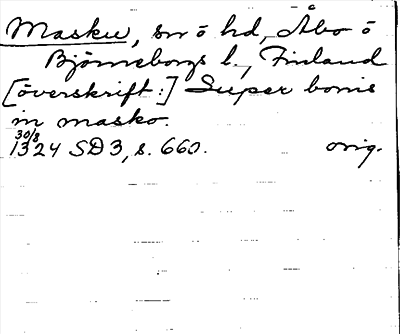 Masku, sn o hd, Åbo o
Björneborgs l., Finland
[överskrift:] Super bonis
in masko.
30/8
1324 SD3, s. 660. orig.